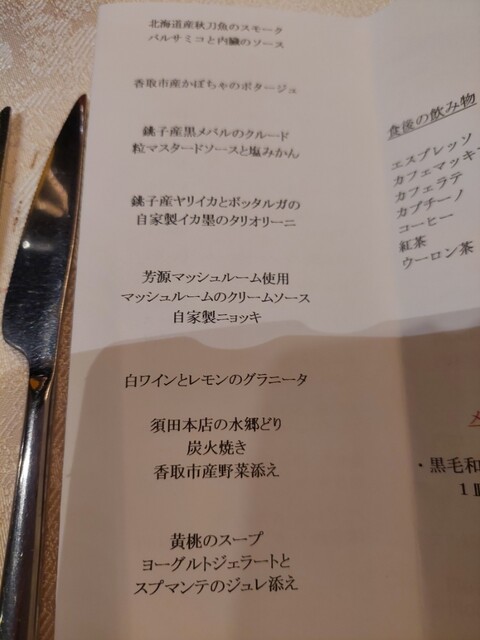 北海道産秋刀魚のスモーク
バルサミコと内臓のソース
香取市産かぼちゃのポタージュ
銚子産黒メバルのクルード
粒マスタードソースと塩みかん
銚子産ヤリイカとボッタルガの
自家製イカ墨のタリオリーニ
芳源マッシュルーム使用
マッシュルームのクリームソース
自家製ニョッキ
白ワインとレモンのグラニータ
須田本店の水郷どり
炭火焼き
香取市産野菜添え
黄桃のスープ
ヨーグルトジェラートと
スプマンテのジュレ添え
食後の飲み物
エスプレッソ
カフェマッキ
カフェラテ
カプチーノ
コーヒー
紅茶
ウーロン茶
・黒毛和
1皿